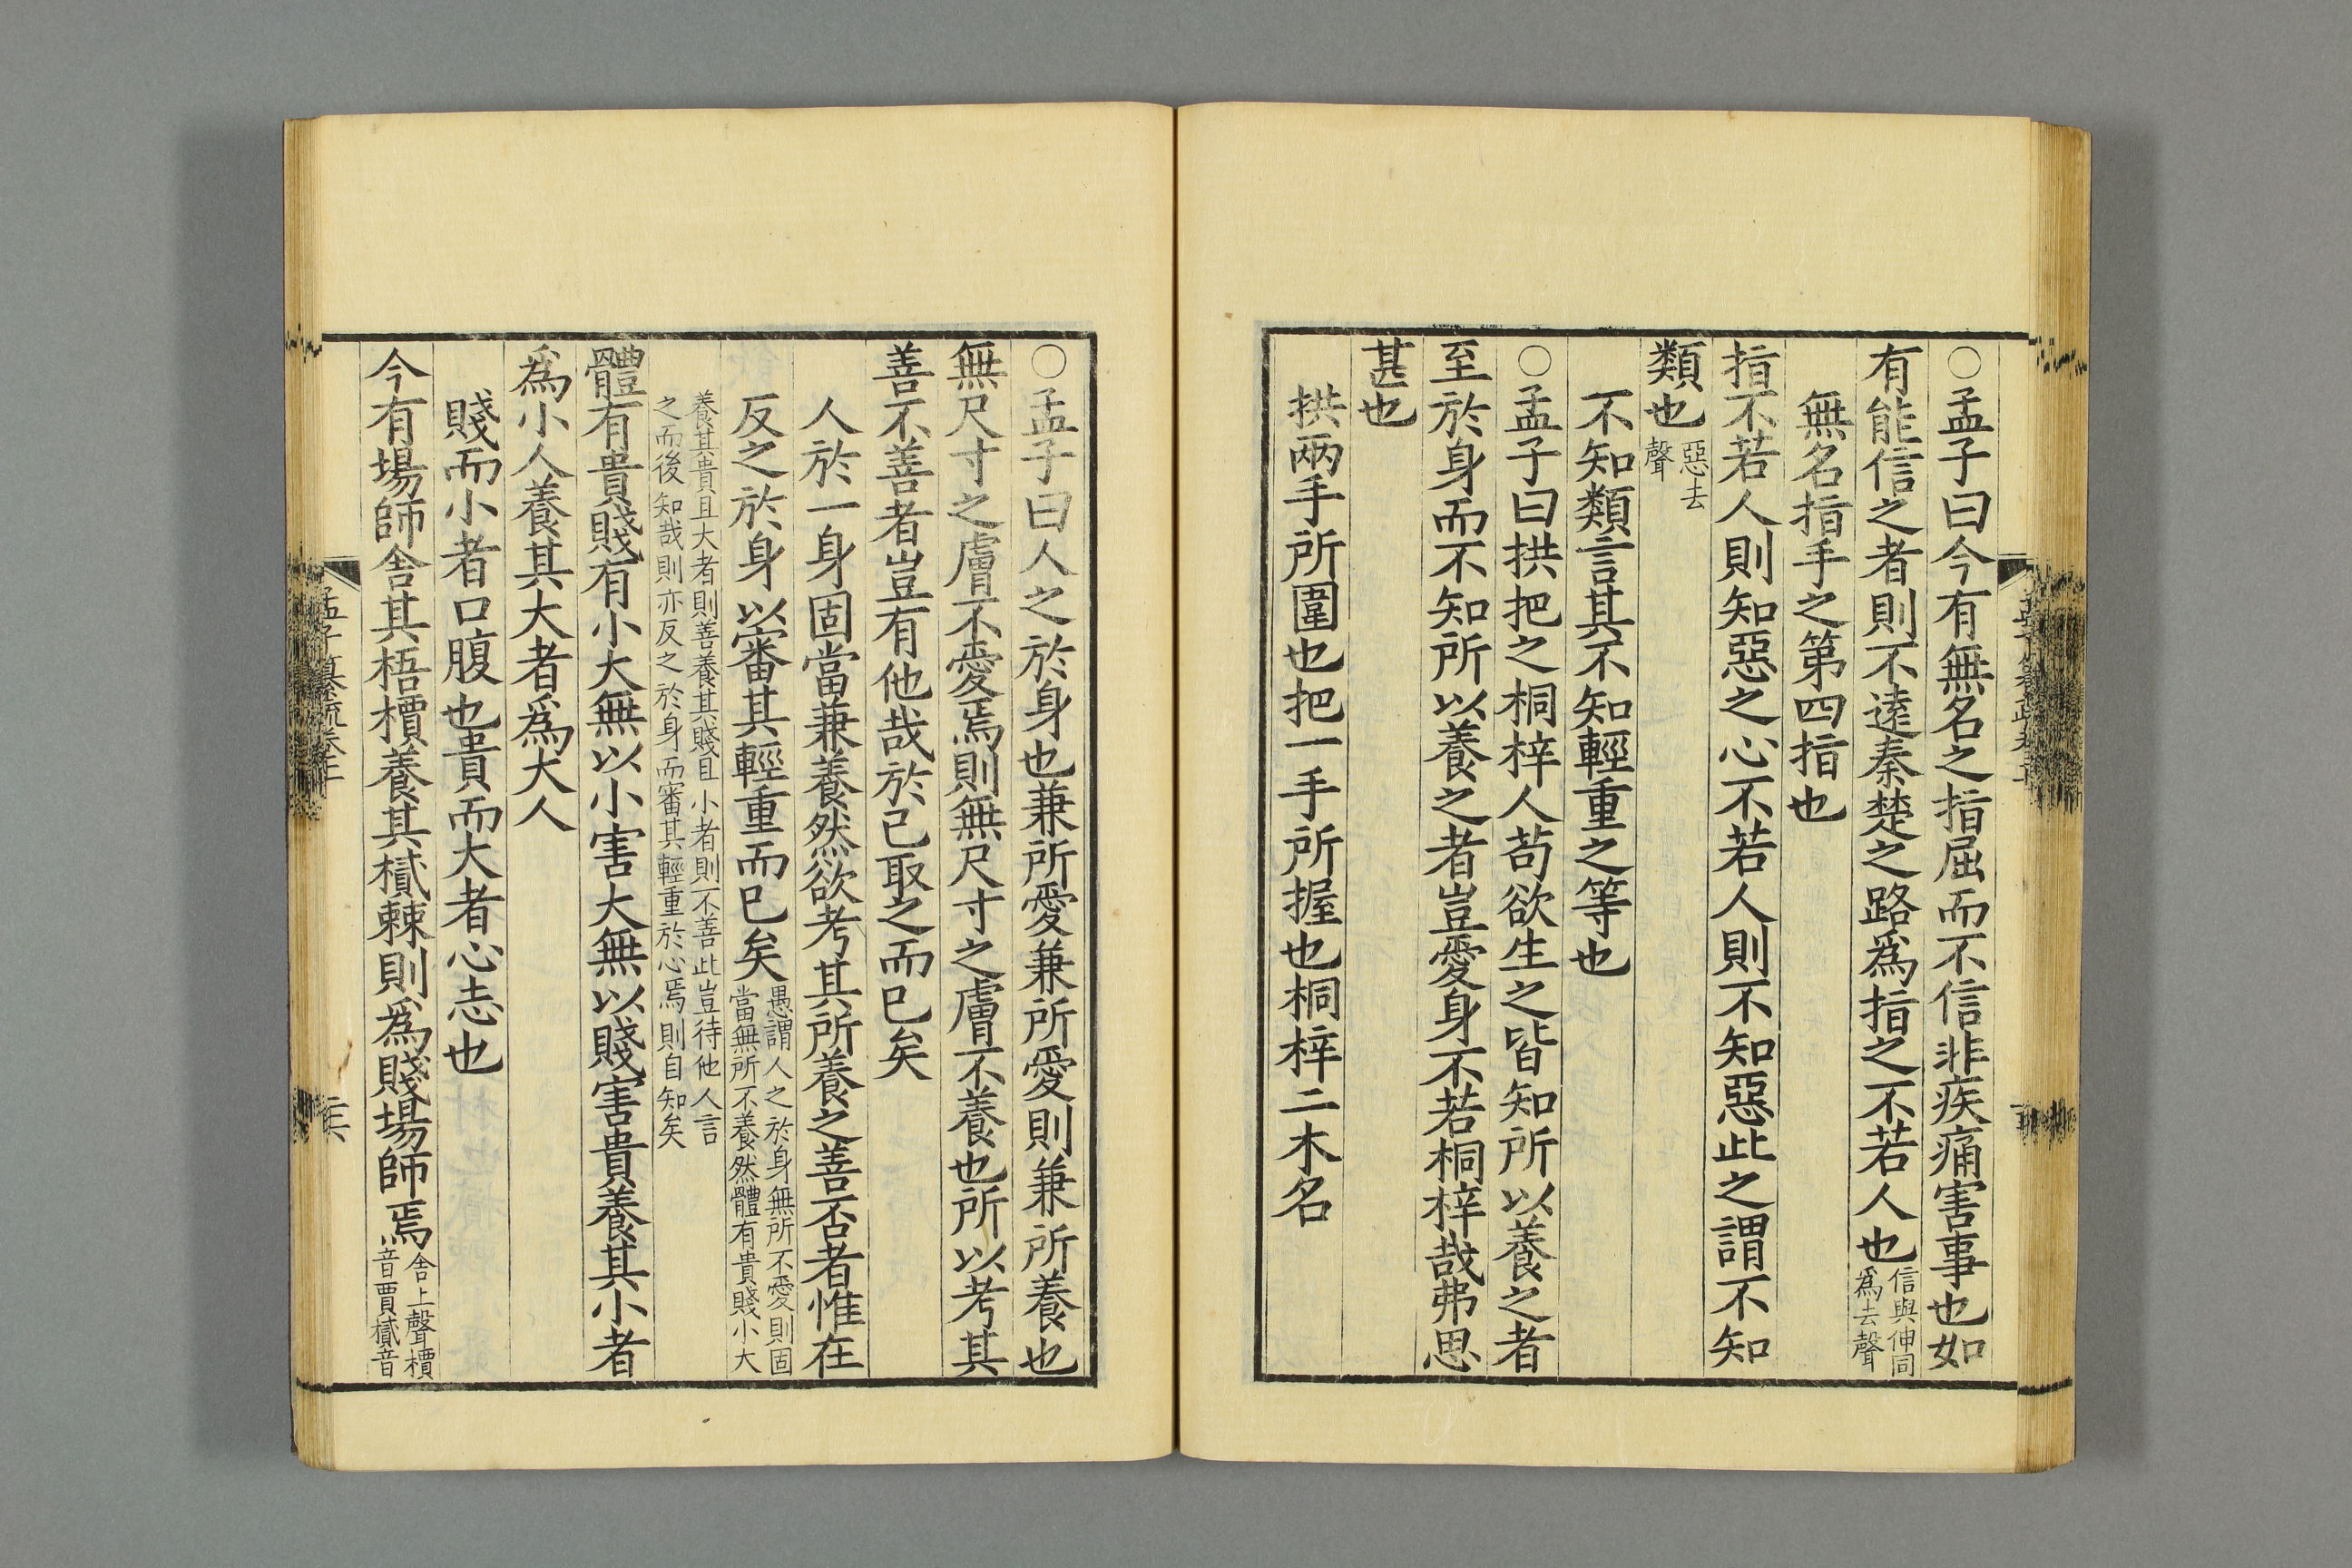 ○孟子曰今有無名之指屈而不信非疾痛害事也如
有能信之者則不遠秦楚之路爲指之不若人也信與伸同爲去聲
無名指手之第四指也
指不若人則知惡之心不若人則不知惡此之謂不知
類也惡去聲
不知類言其不知輕重之等也
○孟子曰拱把之桐梓人苟欲生之皆知所以養之者
至於身而不知所以養之者豈愛身不若桐梓哉弗思
甚也
拱兩手所圍也把一手所握也桐梓二木名
○孟子曰人之於身也兼所愛兼所愛則兼所養也
無尺寸之膚不愛焉則無尺寸之膚不養也所以考其
善不善者豈有他哉於己取之而已矣
人於一身固當兼養然欲考其所養之善否者惟在
反之於身以審其輕重而已矣愚謂人之於身無所不愛則固當無所不養然體有貴賤小大
養其貴且大者則善養其賤且小者則不善此豈待他人言之而後知哉則亦反之於身而審其輕重於心焉則自知矣
體有貴賤有小大無以小害大無以賤害貴養其小者
爲小人養其大者爲大人
賤而小者口腹也貴而大者心志也
今有場師舍其梧檟養其樲棘則爲賤場師焉舍上聲檟音賈樲音
孟子纂疏卷十一
二六